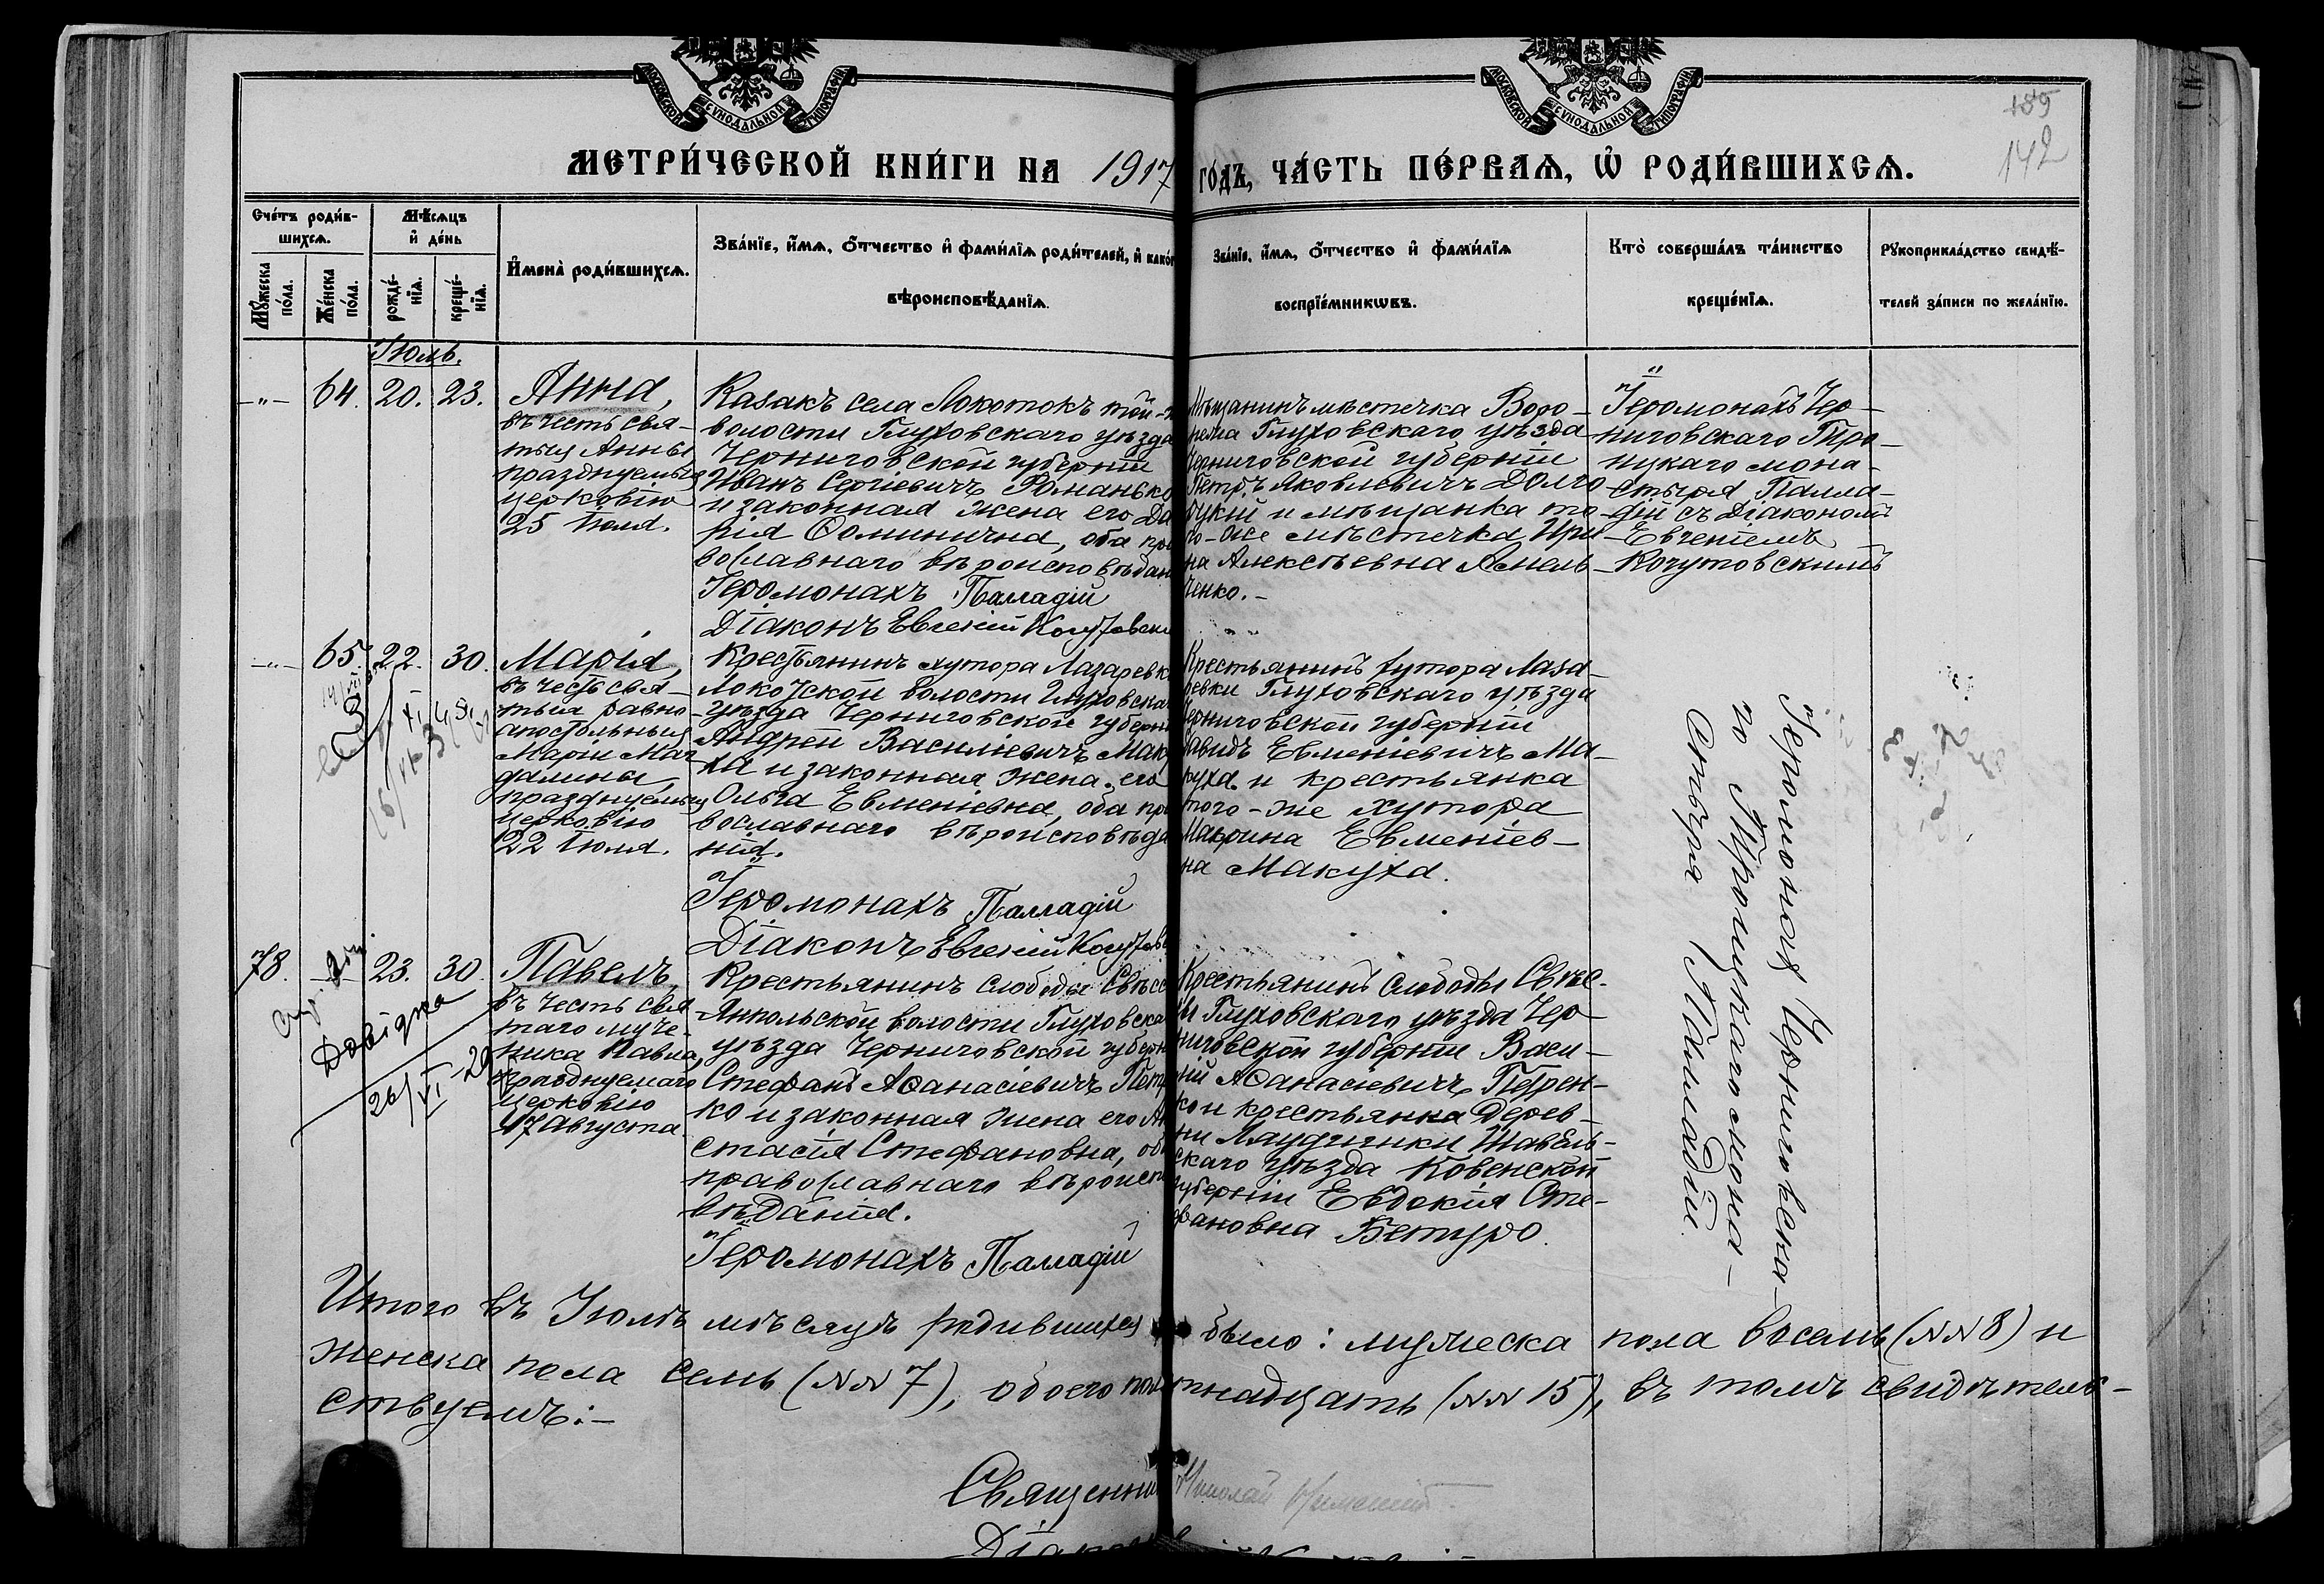 МОСКОВСКОЙ СУНОДАЛЬНОЙ ТИПОГРАФІИ
МОСКОВСКОЙ СУНОДАЛЬНОЙ ТИПОГРАФІИ
189
142
МЕТРИ́ЧЕСКОЙ КНИ́ГИ НА 1917 ГО́ДЪ, ЧА́СТЬ ПЕ́РВАѦ, Ѡ҆ РОДИ́ВШИХСѦ.
Сче́тъ роди́в-
шихсѧ.
Мѣ́сѧцъ
и҆ де́нь
Мꙋ́жеска
по́ла.
Же́нска
по́ла.
рожде́-
нїѧ.
креще́-
нїѧ.
И҆мена̀ роди́вшихсѧ.
Зва́нїе, и҆́мѧ, ѻ҆́тчество и҆ фами́лїѧ роди́телей, и҆ како́г
вѣроисповѣ́данїѧ.
Зва́нїе, и҆́мѧ, ѻ҆́тчество и҆ фами́лїѧ
воспрїе́мникѡвъ.
Кто̀ соверша́лъ та́инство
креще́нїѧ.
Рꙋкоприкла́дство свидѣ́-
телей за́писи по жела́нїю.
Іюль.
-"- 64. 20. 23.
Анна,
въ честь свя-
тыя Анны
празднуемыя
церковію
25 Іюля.
Казакъ села Локотокъ той-ж
волости Глуховскаго уѣзда
Черниговской губерніи
Иванъ Сергіевичъ Романько
и законная жена его Да
рія Ѳоминична, оба пра
вославнаго вѣроисповѣдан
Іеромонахъ Палладій
Діаконъ Евгеній Кочутовски
Мѣщанинъ мѣстечка Воро-
нежа Глуховскаго уѣзда
Черниговской губерніи
Петръ Яковлевичъ Долго
рукій и мѣщанка то-
го-же мѣстечка Ири
на Алексѣевна Амель-
ченко.-
Іеромонахъ Чер-
ниговскаго Трои-
цкаго мона-
стыря Палла-
дій съ Діакономъ
Евгеніемъ
Кочутовскимъ
-"- 65. 22. 30.
Марія,
въ честь свя-
тыя равно-
апостольныя
Маріи Маг
далины,
празднуемыя
церковію
22 Іюля.
Крестьянинъ хутора Лазаревк
Локотской волости Глуховска
уѣзда Черниговской губерн
Андрей Василіевичъ Маку
ха и законная жена его
Ольга Евменіевна, оба пра
вославнаго вѣроисповѣда
нія.
Іеромонахъ Палладій
Діаконъ Евгеній Кочутов
Крестьянинъ хутора Лаза-
ревки Глуховскаго уѣзда
Черниговской губерніи
Давидъ Евменіевичъ Ма-
руха и крестьянка
того-же хутора
Макрина Евменіев-
на Макуха.
Іеромонахъ Черниговска-
го Троицкаго мона-
стыря Палладій
78. 23. 30.
Довідка
26/VI-29
Павелъ,
въ честь свя
таго муче-
ника Павла,
празднуемаго
церковію
17 Августа.
Крестьянинъ слободы Свѣсс
Янпольской волости Глуховска
уѣзда Черниговской губерн
Стефанъ Аѳанасіевичъ Петр
ко и законная жена его Ан
стасія Стефановна, оба
православнаго вѣроиспо
вѣданія.
Іеромонахъ Палладій
Крестьянинъ слободы Свѣс-
ы Глуховскаго уѣзда Чер-
ниговской губерніи Васи-
лій Аѳанасіевичъ Петрен-
ко и крестьянка дерев-
ни Ляудчинки Шавель-
скаго уѣзда Ковенской
губерніи Евдокія Сте-
фановна Бетуро.
Итого въ Іюлѣ мѣсяцѣ родившихся было: мужеска пола восемь (№№ 8) и
женска пола семь (№№ 7), обоего пола пятнадцать (№№ 15), въ томъ свидѣтель-
ствуемъ:-
Священник Николай
Діакон